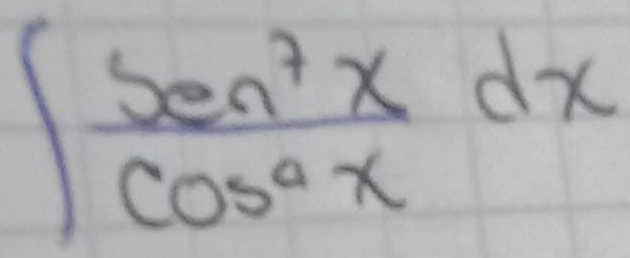 ∫ sen⁷ x / cosᵃ x dx